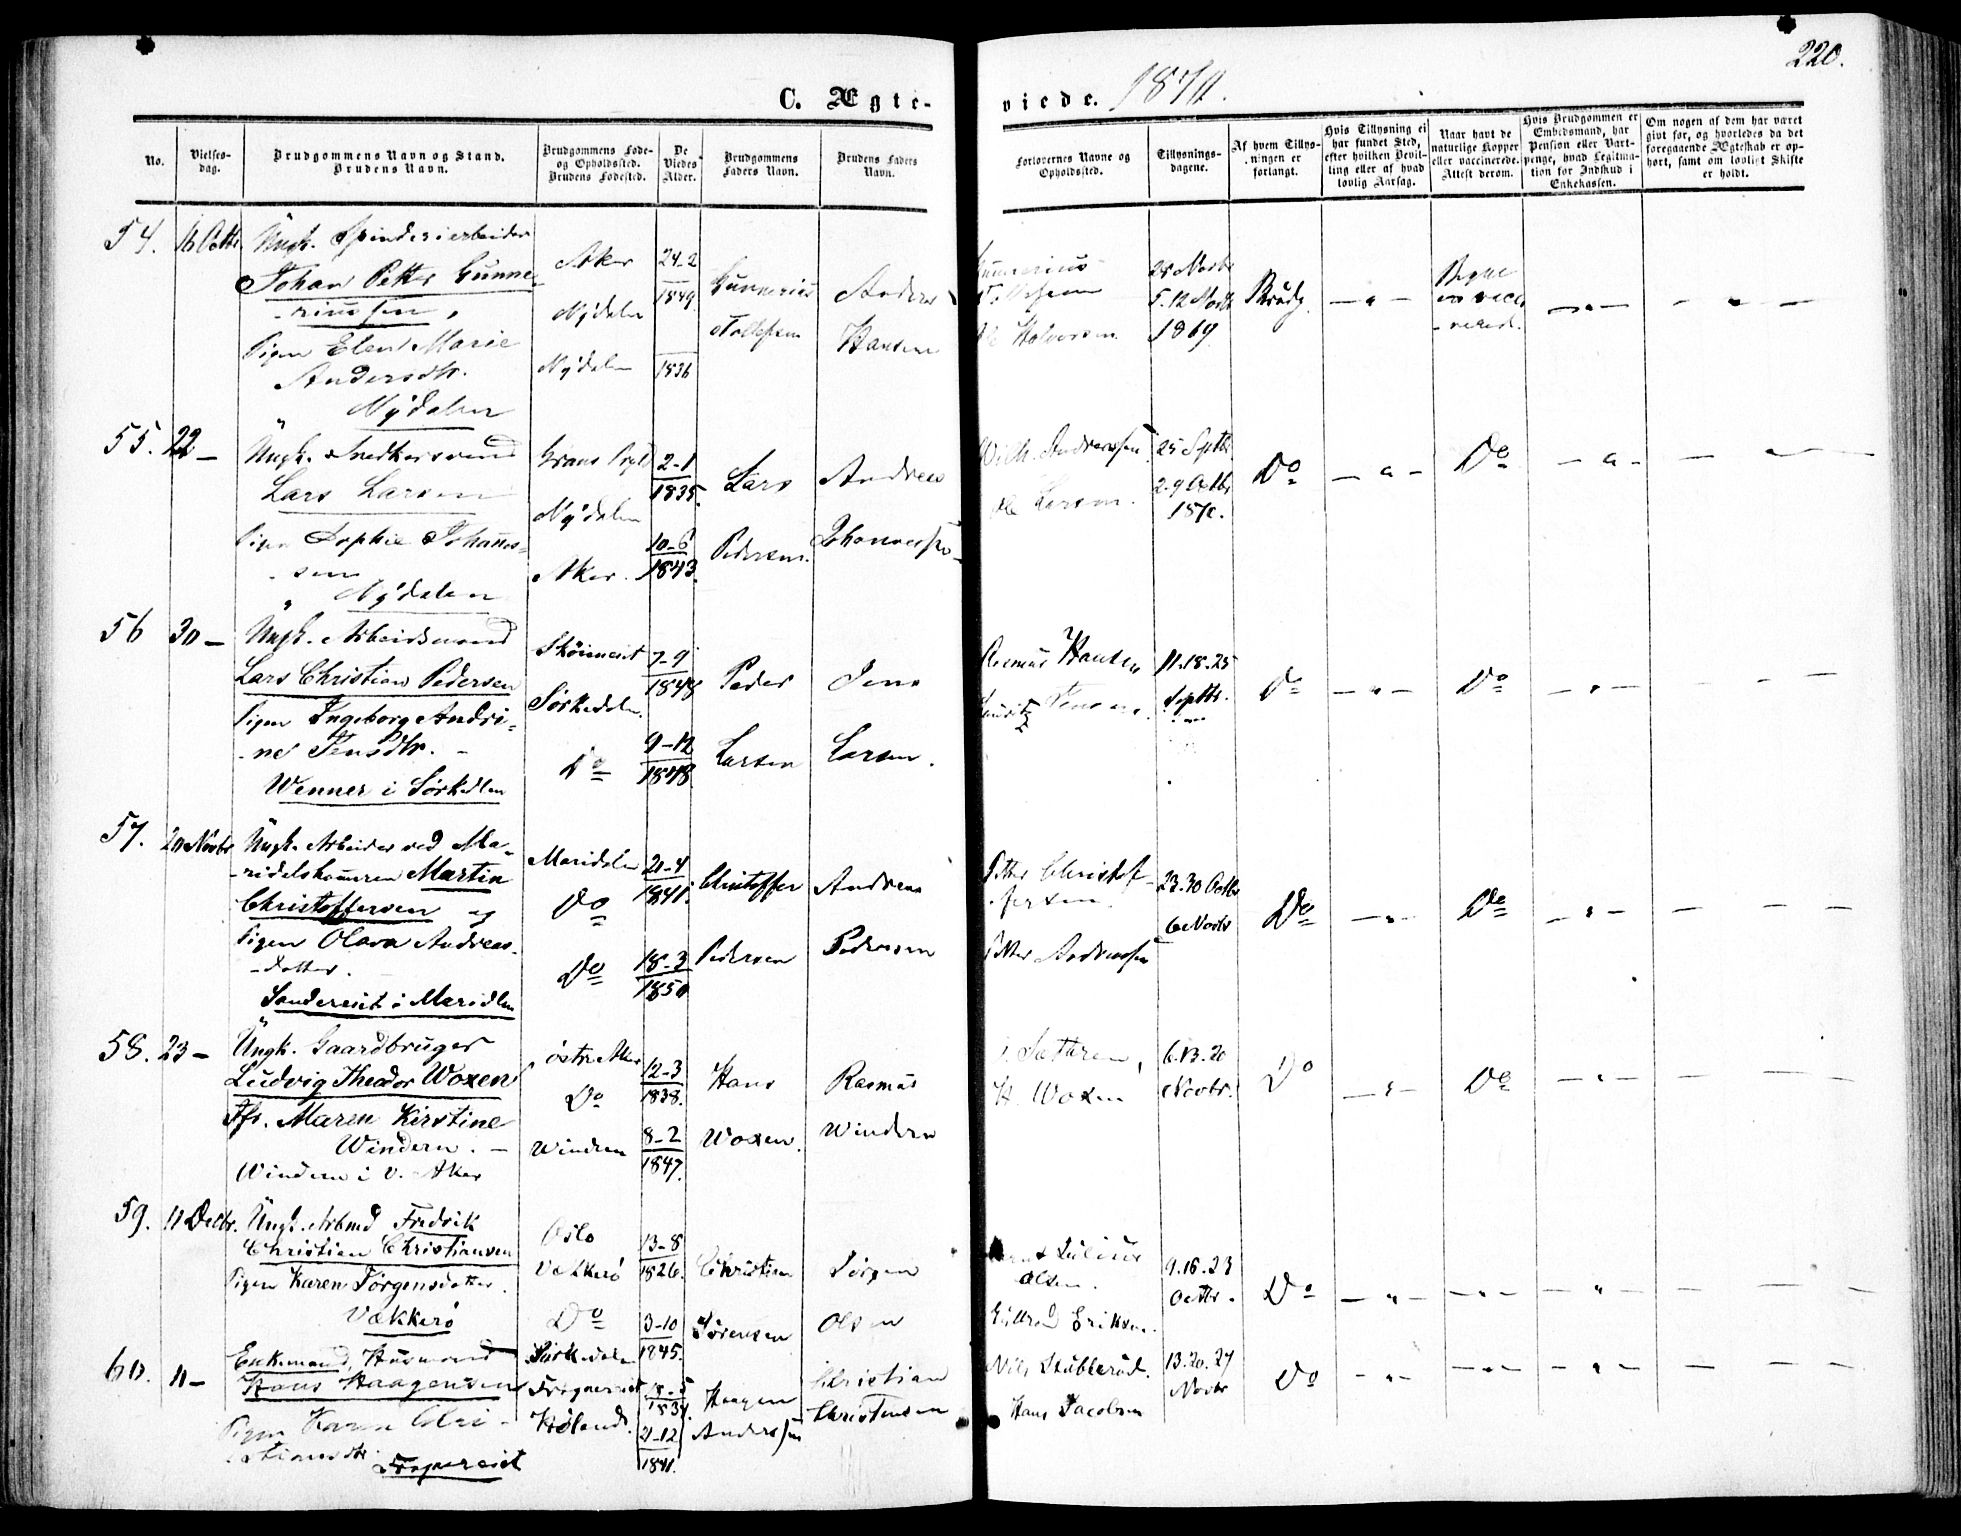 220.
C. Ægte-
viede. 1870.
No.
Vielses-
dag.
Brudgommens Navn og Stand.
Brudens Navn.
Brudgommens Føde-
og Opholdssted.
Brudens Fødested.
De
Viedes
Alder.
Brudgommens
Faders Navn.
Brudens Faders
Navn.
Forlovernes Navne og
Opholdssted.
Tillysnings-
dagene.
Af hvem Tillys-
ningen er
forlangt.
Hvis Tillysning ei
har fundet Sted,
efter hvilken Bevil-
ling eller af hvad
lovlig Aarsag.
Naar havt de
naturlige Kopper
eller vaccinerede.
Attest derom.
Hvis Brudgommen er
Embedsmand, har
Pension eller Vart-
penge, hvad Legitima-
tion for Indskud i
Enkekassen.
Om nogen af dem har været
givt før, og hvorledes da det
foregaaende Ægteskab er op-
hørt, samt om lovligt Skifte
er holdt.
54. 16 Octbr
Ungk. Spinderiarbeider
Johan Petter Gunne-
-riussen,
Pigen Elen Marie
Andersdtr.
Nydalen
Aker
Nydalen
Nydalen
24-2
1849
1836
Gunnerius
Tollefsen
Anders
Hansen
Gunnerius
Tollefsen
Halvorsen
28 Novbr
5.12
1869
Brudg.
55. 22 -
Ungk. Snedkersvend
Lars Larsen
Pigen Sophie Johannes-
-sen
Nydalen
Grans Prgld
Nydalen
Aker.
2-1
1835.
10-6
1843.
Lars
Pedersen.
Andreas
Johannessen
Wilh. Andreassen
Ole Larsen.
25 Septbr
2.9 Octbr
1870.
Do
Do
56 30 -
Ungk. Arbeidsmand
Lars Christian Pedersen
Pigen Ingeborg Andri-
-ne Jensdtr. -
Wenner i Sørkedlen
Sørkedalen.
Do
7-9
1848
9-12
1848
Peder
Larsen
Jens
Larsen.
Rasmus Hansen
Lauritz Jensen.
11.18.25
Septbr.
Do
Do
57. 20 Novbr
Ungk. Arbeider ved Ma-
-ridalshammeren Martin
Christoffersen og
Pigen Olava Andreas-
-datter.
Sandereiet i Maridlen
Maridalen
Do
Do
21-4
1841.
18-3
1850
Christoffer
Pedersen
Andreas
Pedersen
Petter Christof-
fersen.
Petter Andreassen
23.30 Octbr
6 Novbr
Do
Do
58. 23 -
Ungk. Gaardbruger
Ludvig Theodor Woxen
Jfr. Maren Kirstine
Windern. -
Windern i V. Aker
østre Aker
Do
Windern
12-3
1838.
8-2
1847.
Hans
Woxen.
Rasmus
Windern
Sæthren,
H. Woxen
6.13.20
Novbr.
Do
Do
59. 11 Decbr.
Ungk. Arbmd Fredrik
Christian Christiansen
Pigen Karen Jørgensdatter.
Vækkerø
Oslo
Vækkerø
Do
13-8
1826.
3-10
1845.
Christian
Sørensen
Jørgen
Olsen
Julius
Olsen.
Gulbrand Eriksen.
9.16.23
Octbr.
Do
60. 11 -
Enkemand, Husmand
Hans Haagensen
Pigen Karen Chri-
-stiansdtr.
Frognereiet
Sørkedalen
Frognereiet
Høland.
18-5
1834.
21-12
1841.
Haagen
Anderssen
Christian
Christensen
Nils Stubberud.
Hans Jacobsen
13.20.27
Novbr
Do